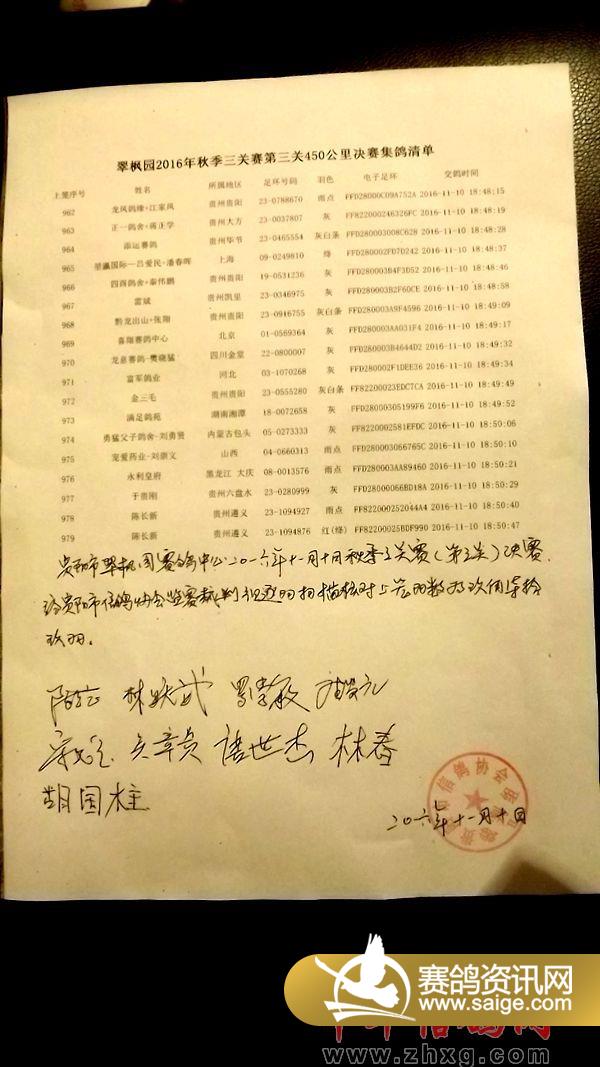 翠枫园2016年秋季三关赛第三关450公里决赛集鸽清单
上笼序号 姓名 所属地区 足环号码 羽色 电子足环 交鸽时间
962 龙凤鸽缘+江家凤 贵州贵阳 23-0788670 雨点 FFD28000C09A752A 2016-11-10 18:48:15
963 正一鸽舍+蒋正学 贵州大方 23-0037807 灰 FF822000246326FC 2016-11-10 18:48:19
964 添运赛鸽 贵州毕节 23-0465554 灰白条 FFD280003008C628 2016-11-10 18:48:28
965 国际—吕爱民+潘春晖 上海 09-0249810 绛 FFD280002FD7D242 2016-11-10 18:48:37
966 四酉鸽舍+秦伟鹏 贵州贵阳 19-0531236 灰 FFD280003B4F3D52 2016-11-10 18:48:46
967 雷斌 贵州凯里 23-0346975 灰 FFD280003B2F60CE 2016-11-10 18:48:58
968 黔龙出山+张翔 贵州贵阳 23-0916755 灰白条 FFD280003A9F4596 2016-11-10 18:49:09
969 喜翔赛鸽中心 北京 01-0569364 灰 FFD280003AA031F4 2016-11-10 18:49:17
970 龙息赛鸽-樊晓猛 四川金堂 22-0800007 灰 FFD280003B4644D2 2016-11-10 18:49:32
971 富军鸽业 河北 03-1070268 灰 FFD280002F1DEE36 2016-11-10 18:49:34
972 金三毛 贵州贵阳 23-0555280 灰白条 FF82200023EDC7CA 2016-11-10 18:49:49
973 满足鸽苑 湖南湘潭 18-0072658 灰 FFD28000305199F6 2016-11-10 18:49:52
974 勇猛父子鸽舍-刘勇贤 内蒙古包头 05-0273333 灰 FF8220002581EFDC 2016-11-10 18:50:06
975 宠爱药业-刘崇义 山西 04-0660313 雨点 FFD280003066765C 2016-11-10 18:50:10
976 永利皇府 黑龙江 大庆 08-0013576 雨点 FFD280003AA89460 2016-11-10 18:50:21
977 于贵刚 贵州六盘水 23-0280999 灰 FFD28000066BD18A 2016-11-10 18:50:29
978 陈长新 贵州遵义 23-1094927 雨点 FF822000252044A4 2016-11-10 18:50:40
979 陈长新 贵州遵义 23-1094876 红(绛) FF82200025BDF990 2016-11-10 18:50:47
贵阳市翠枫园赛鸽中心二〇一六年十一月十日秋季三关赛(第三关)决赛
经贵阳市信鸽协会监赛裁判
林跃武
谭世杰 林春
胡国柱
信鸽协会
二〇一六年十一月十日
赛鸽资讯网
www.saige.com
中华信鸽网
www.zhxg.com